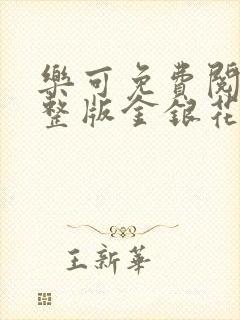 樂可免費閱
整版金銀花
王新華